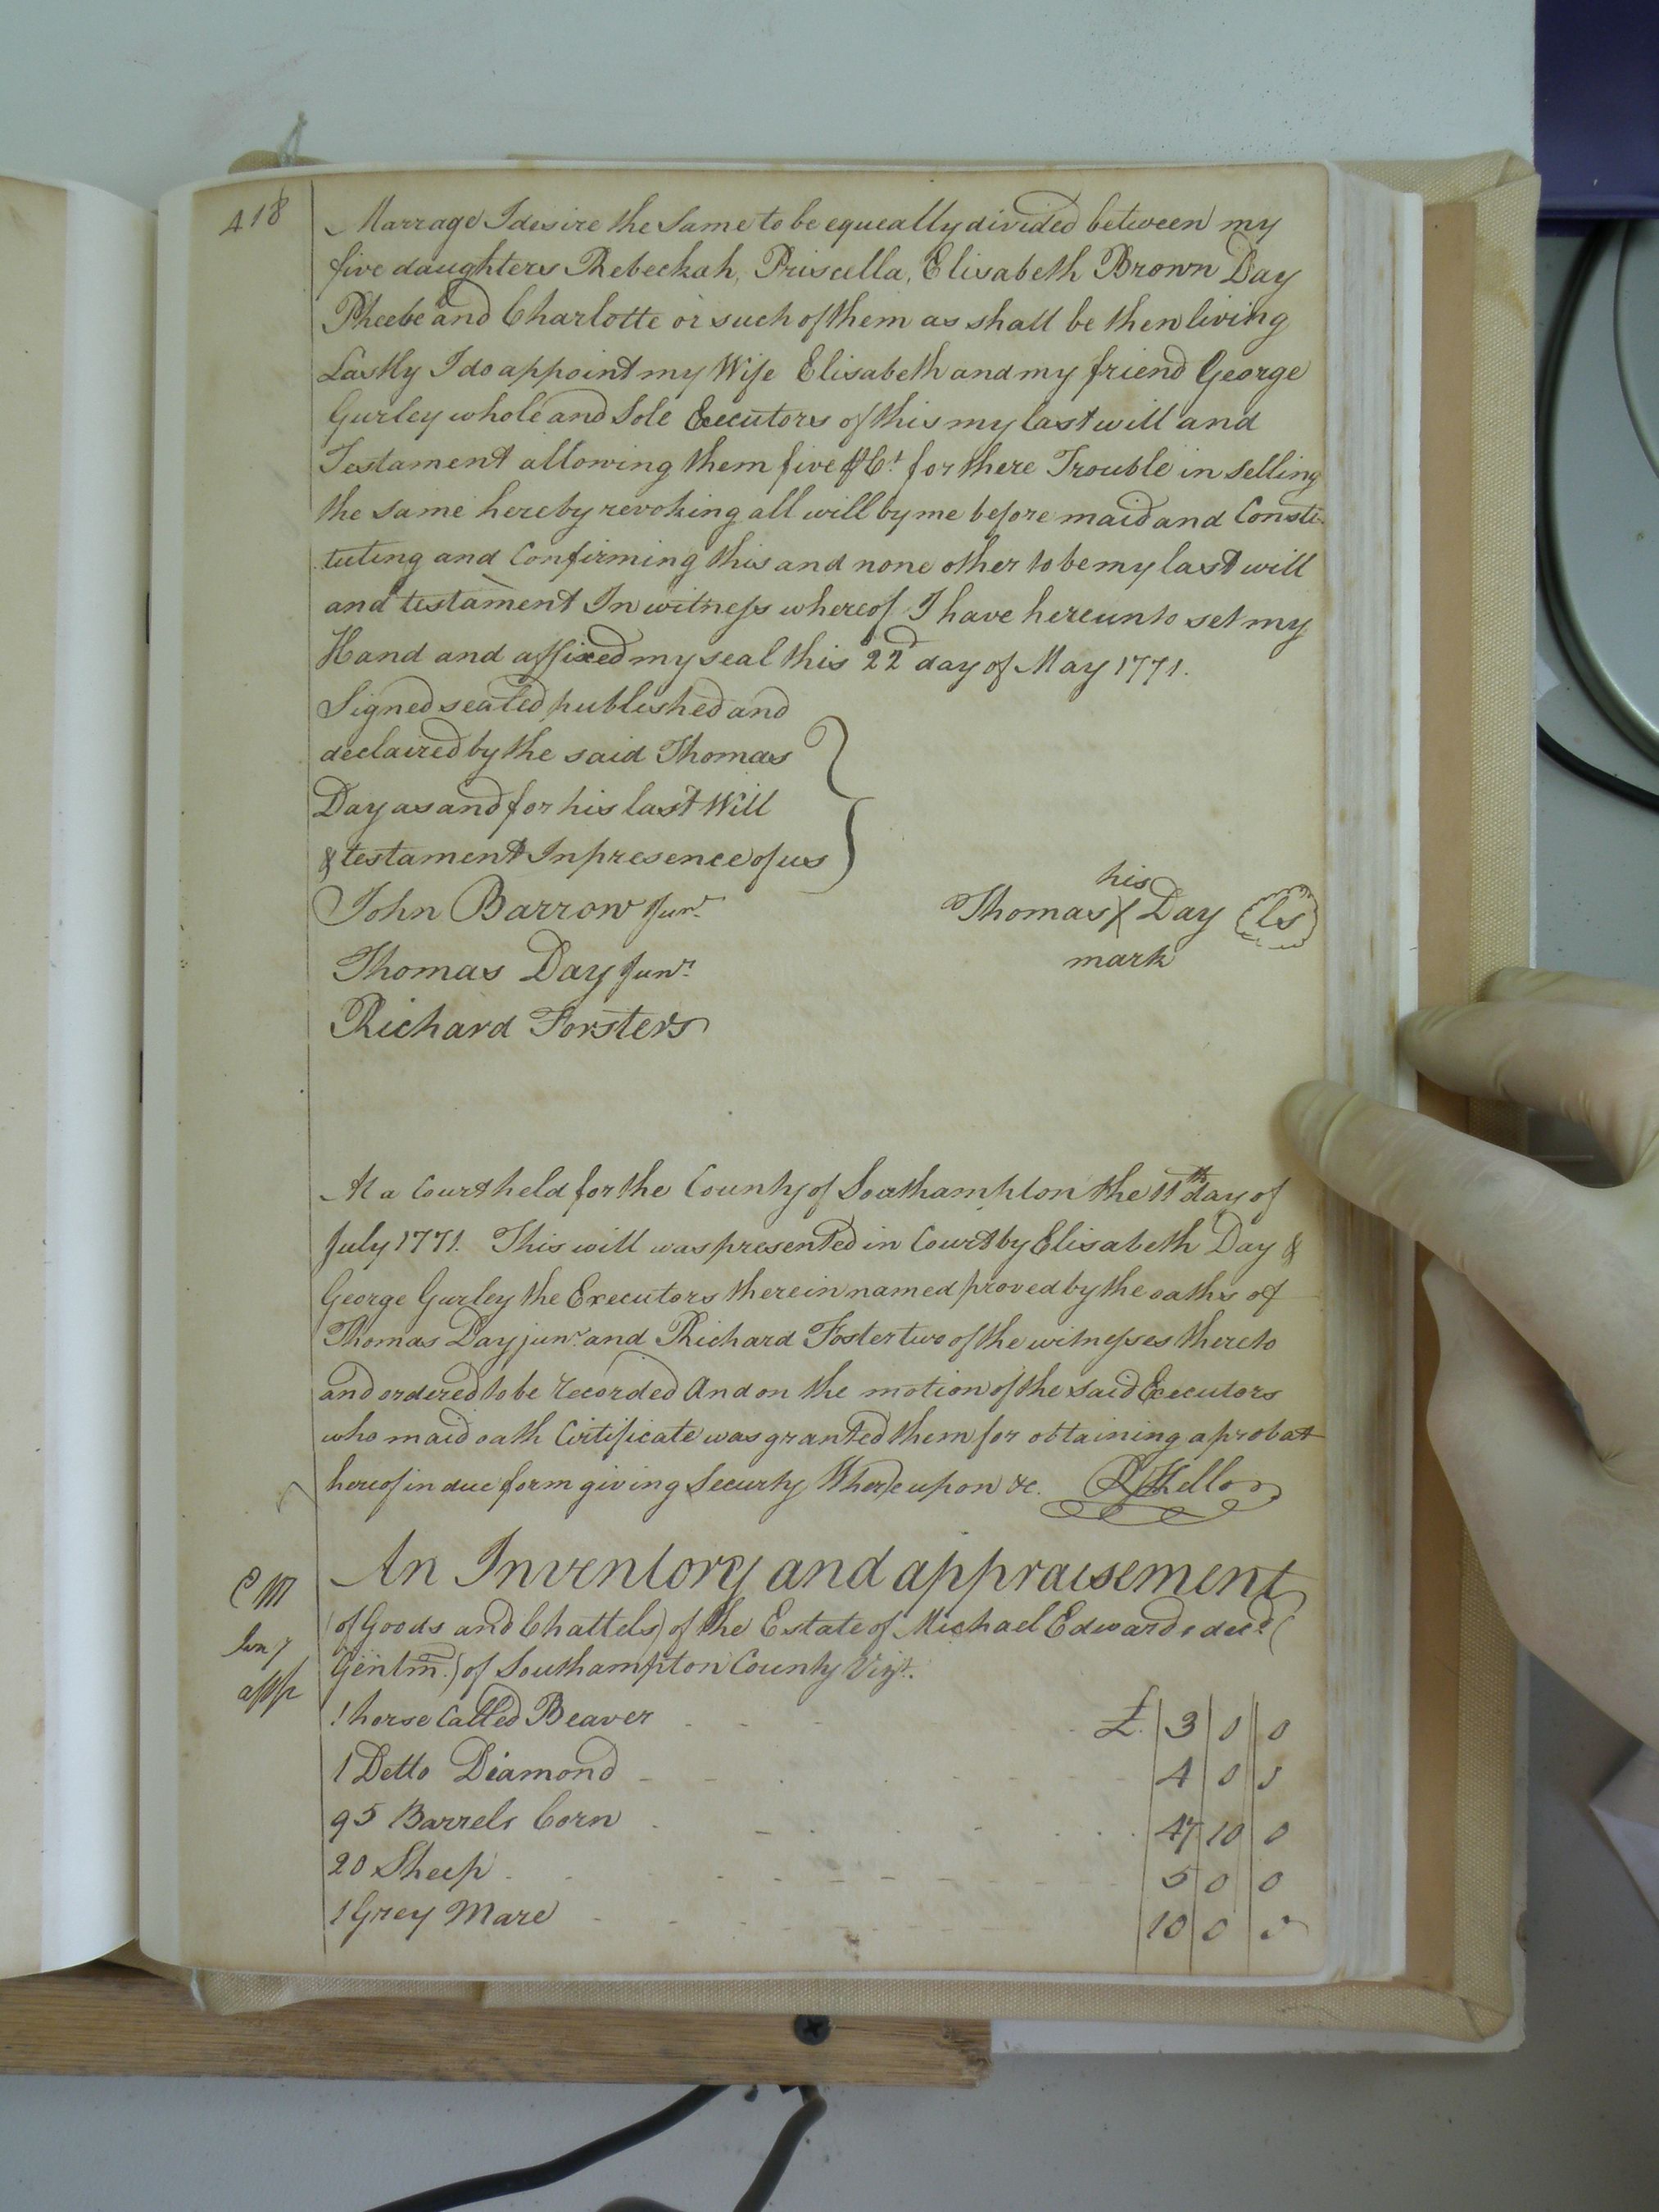 418
Marrage I desire the Same to be equeally divided between my
five daughters Rebeckah, Priscella, Elisabeth Brown Day
Pheebe and Charlotte or such of them as shall be then living
Lastly I do appoint my Wife Elisabeth and my friend George
Gurley whole and Sole Executors of this my last will and
Testament allowing them five ⅌ Ct. for there Trouble in selling
the same hereby revoking all will by me before maid and Consti-
tuting and Confirming this and none other to be my last will
and testament In witness whereof I have hereunto set my
Hand and affixed my seal this 22d day of May 1771.
Signed sealed published and
declaired by the said Thomas
Day as and for his last Will
& testament In presence of us
John Barrow Junr.
his
Thomas X Day Ls
mark
Thomas Day Junr.
Richard Forsters
At a Court held for the County of Southampton the 11th day of
July 1771. This will was presented in Court by Elisabeth Day &
George Gurley the Executors therein named proved by the oaths of
Thomas Day junr. and Richard Foster two of the witnesses thereto
and ordered to be recorded And on the motion of the said Executors
who maid oath Certificate was granted them for obtaining a probat
hereof in due form giving Security Whereupon &c. R Kello
An Inventory and appraisement
of Goods and Chattels) of the Estate of Michael Edwards decd. (
Gentm.) of Southampton County Vizt.
1 horse Called Beaver £. 3 0 0
1 Detto Diamond 4 0 0
95 Barrels Corn 47 10 0
20 Sheep 5 0 0
1 Grey Mare 10 0 0